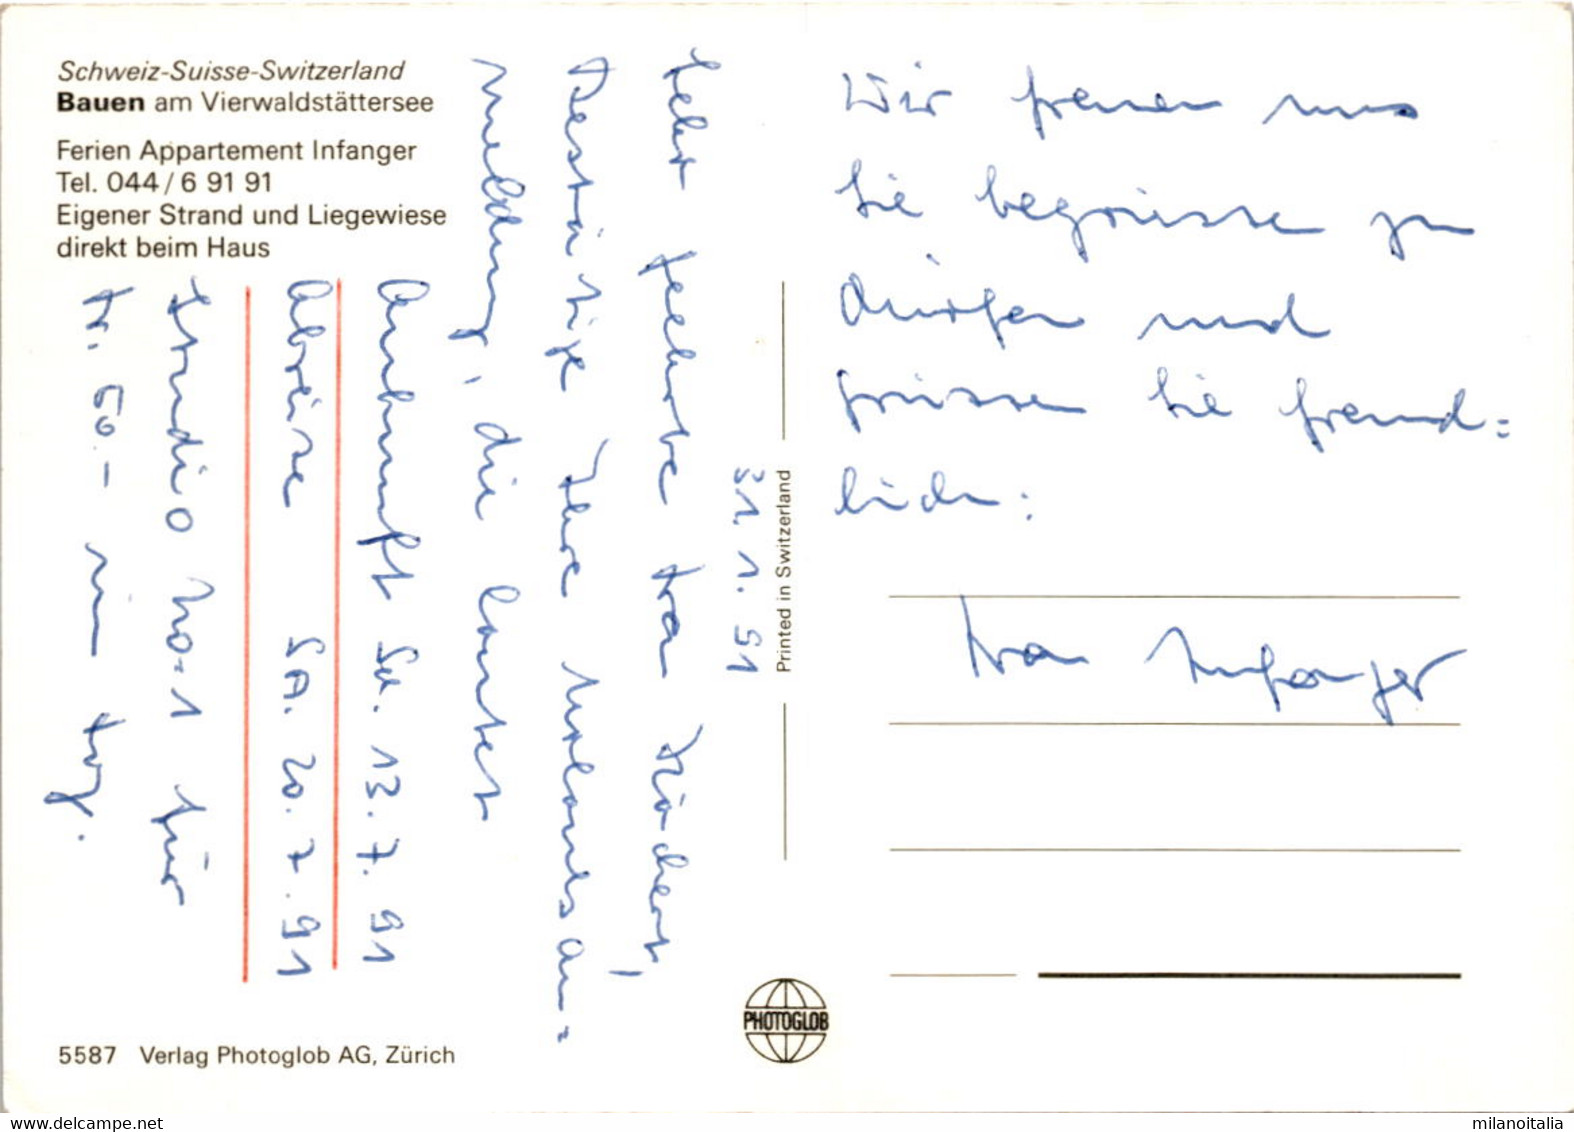 Schweiz-Suisse-Switzerland
Bauen am Vierwaldstättersee
Ferien Appartement Infanger
Tel. 044/6 91 91
Eigener Strand und Liegewiese
direkt beim Haus
31. 1. 91
Sehr geehrte Fra
Bestätige Ihre Urlaubsan=
meldung, die lautet
Ankunft Sa. 13. 7. 91
Abreise SA. 20. 7. 91
Studio No 1 für
Fr. 60.- im Tag.
Wir freuen uns
Sie begrüsse zu
dürfen und
grüssen Sie freund=
lich:
Fra Infanger
Printed in Switzerland
PHOTOGLOB
5587 Verlag Photoglob AG, Zürich
www.delcampe.net
milanoitalia